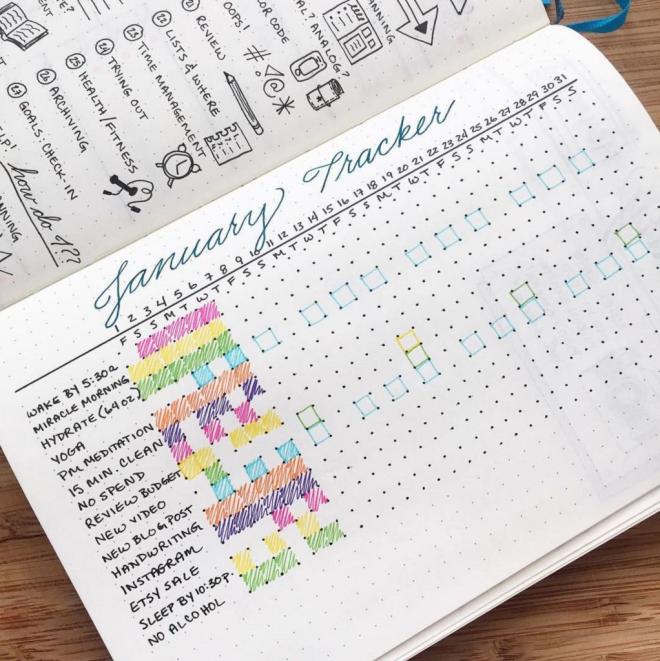 PLANNING
AL? ANALOG?
LOR CODE
OOPS!
21 REVIEW
22 LISTS & WHERE
23 TIME MANAGEMENT
24 TRYING OUT
25 HEALTH/FITNESS
26 ARCHIVING
GOALS: CHECK-IN
how do I??
ANNING
January Tracker
1 2 3 4 5 6 7 8 9 10 11 12 13 14 15 16 17 18 19 20 21 22 23 24 25 26 27 28 29 30 31
F S S M T W T F S S M T W T F S S M T W T F S S M T W T F S S
WAKE BY 5:30a
MIRACLE MORNING
HYDRATE (64 OZ.)
YOGA
PM MEDITATION
15 MIN. CLEAN
NO SPEND
REVIEW BUDGET
NEW VIDEO
NEW BLOG POST
HANDWRITING
INSTAGRAM
ETSY SALE
SLEEP BY 10:30p.
NO ALCOHOL